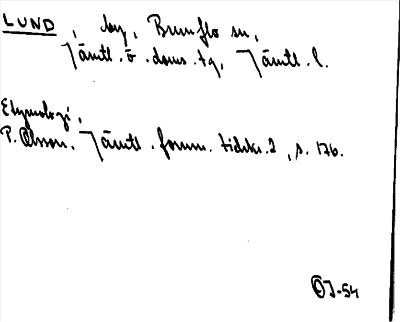 LUND, by, Brunflo sn,
Jämtl. ö. doms. tg, Jämtl. l.
Etymologi,
P. Olsson, Jämtl. fornm. tidskr. 2, s. 176.
ÖJ-54